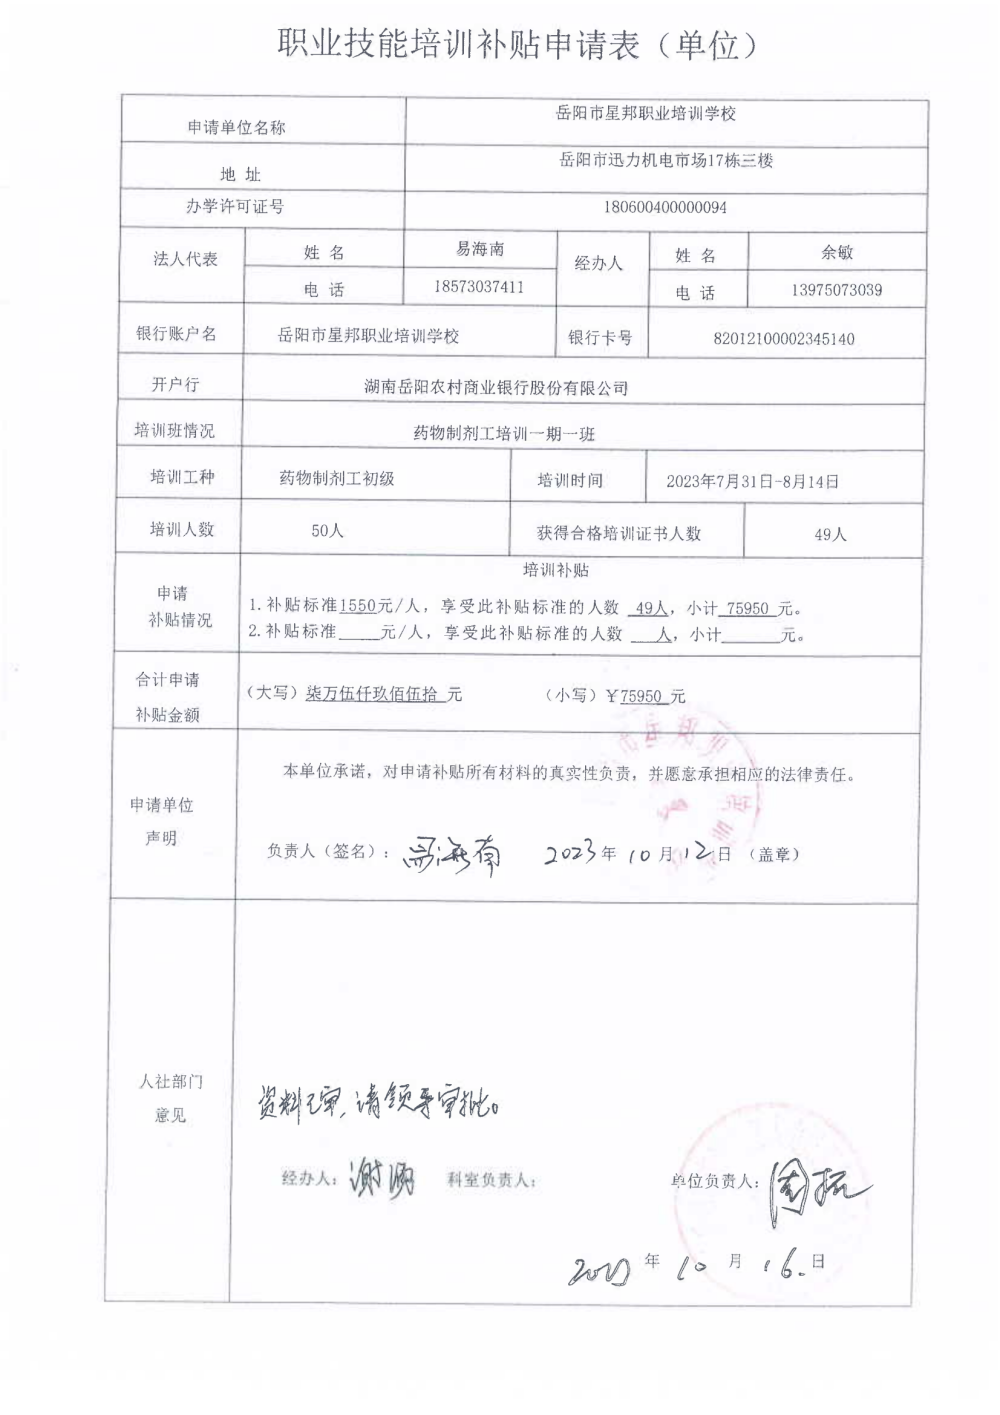 职业技能培训补贴申请表（单位）
申请单位名称 岳阳市星邦职业培训学校
地 址 岳阳市迅力机电市场17栋三楼
办学许可证号 180600400000094
法人代表 姓 名 易海南 经办人 姓 名 余敏
电 话 18573037411 电 话 13975073039
银行账户名 岳阳市星邦职业培训学校 银行卡号 82012100002345140
开户行 湖南岳阳农村商业银行股份有限公司
培训班情况 药物制剂工培训一期一班
培训工种 药物制剂工初级 培训时间 2023年7月31日-8月14日
培训人数 50人 获得合格培训证书人数 49人
申请
补贴情况
培训补贴
1.补贴标准1550元/人，享受此补贴标准的人数 49人，小计 75950 元。
2.补贴标准____元/人，享受此补贴标准的人数 ___人，小计______元。
合计申请
补贴金额
（大写）柒万伍仟玖佰伍拾 元 （小写）￥75950 元
申请单位
声明
本单位承诺，对申请补贴所有材料的真实性负责，并愿意承担相应的法律责任。
负责人（签名）：易海南 2023年10月12日（盖章）
人社部门
意见
资料已审，请领导审批。
经办人：谢 科室负责人： 单位负责人：周
2023年10月16日